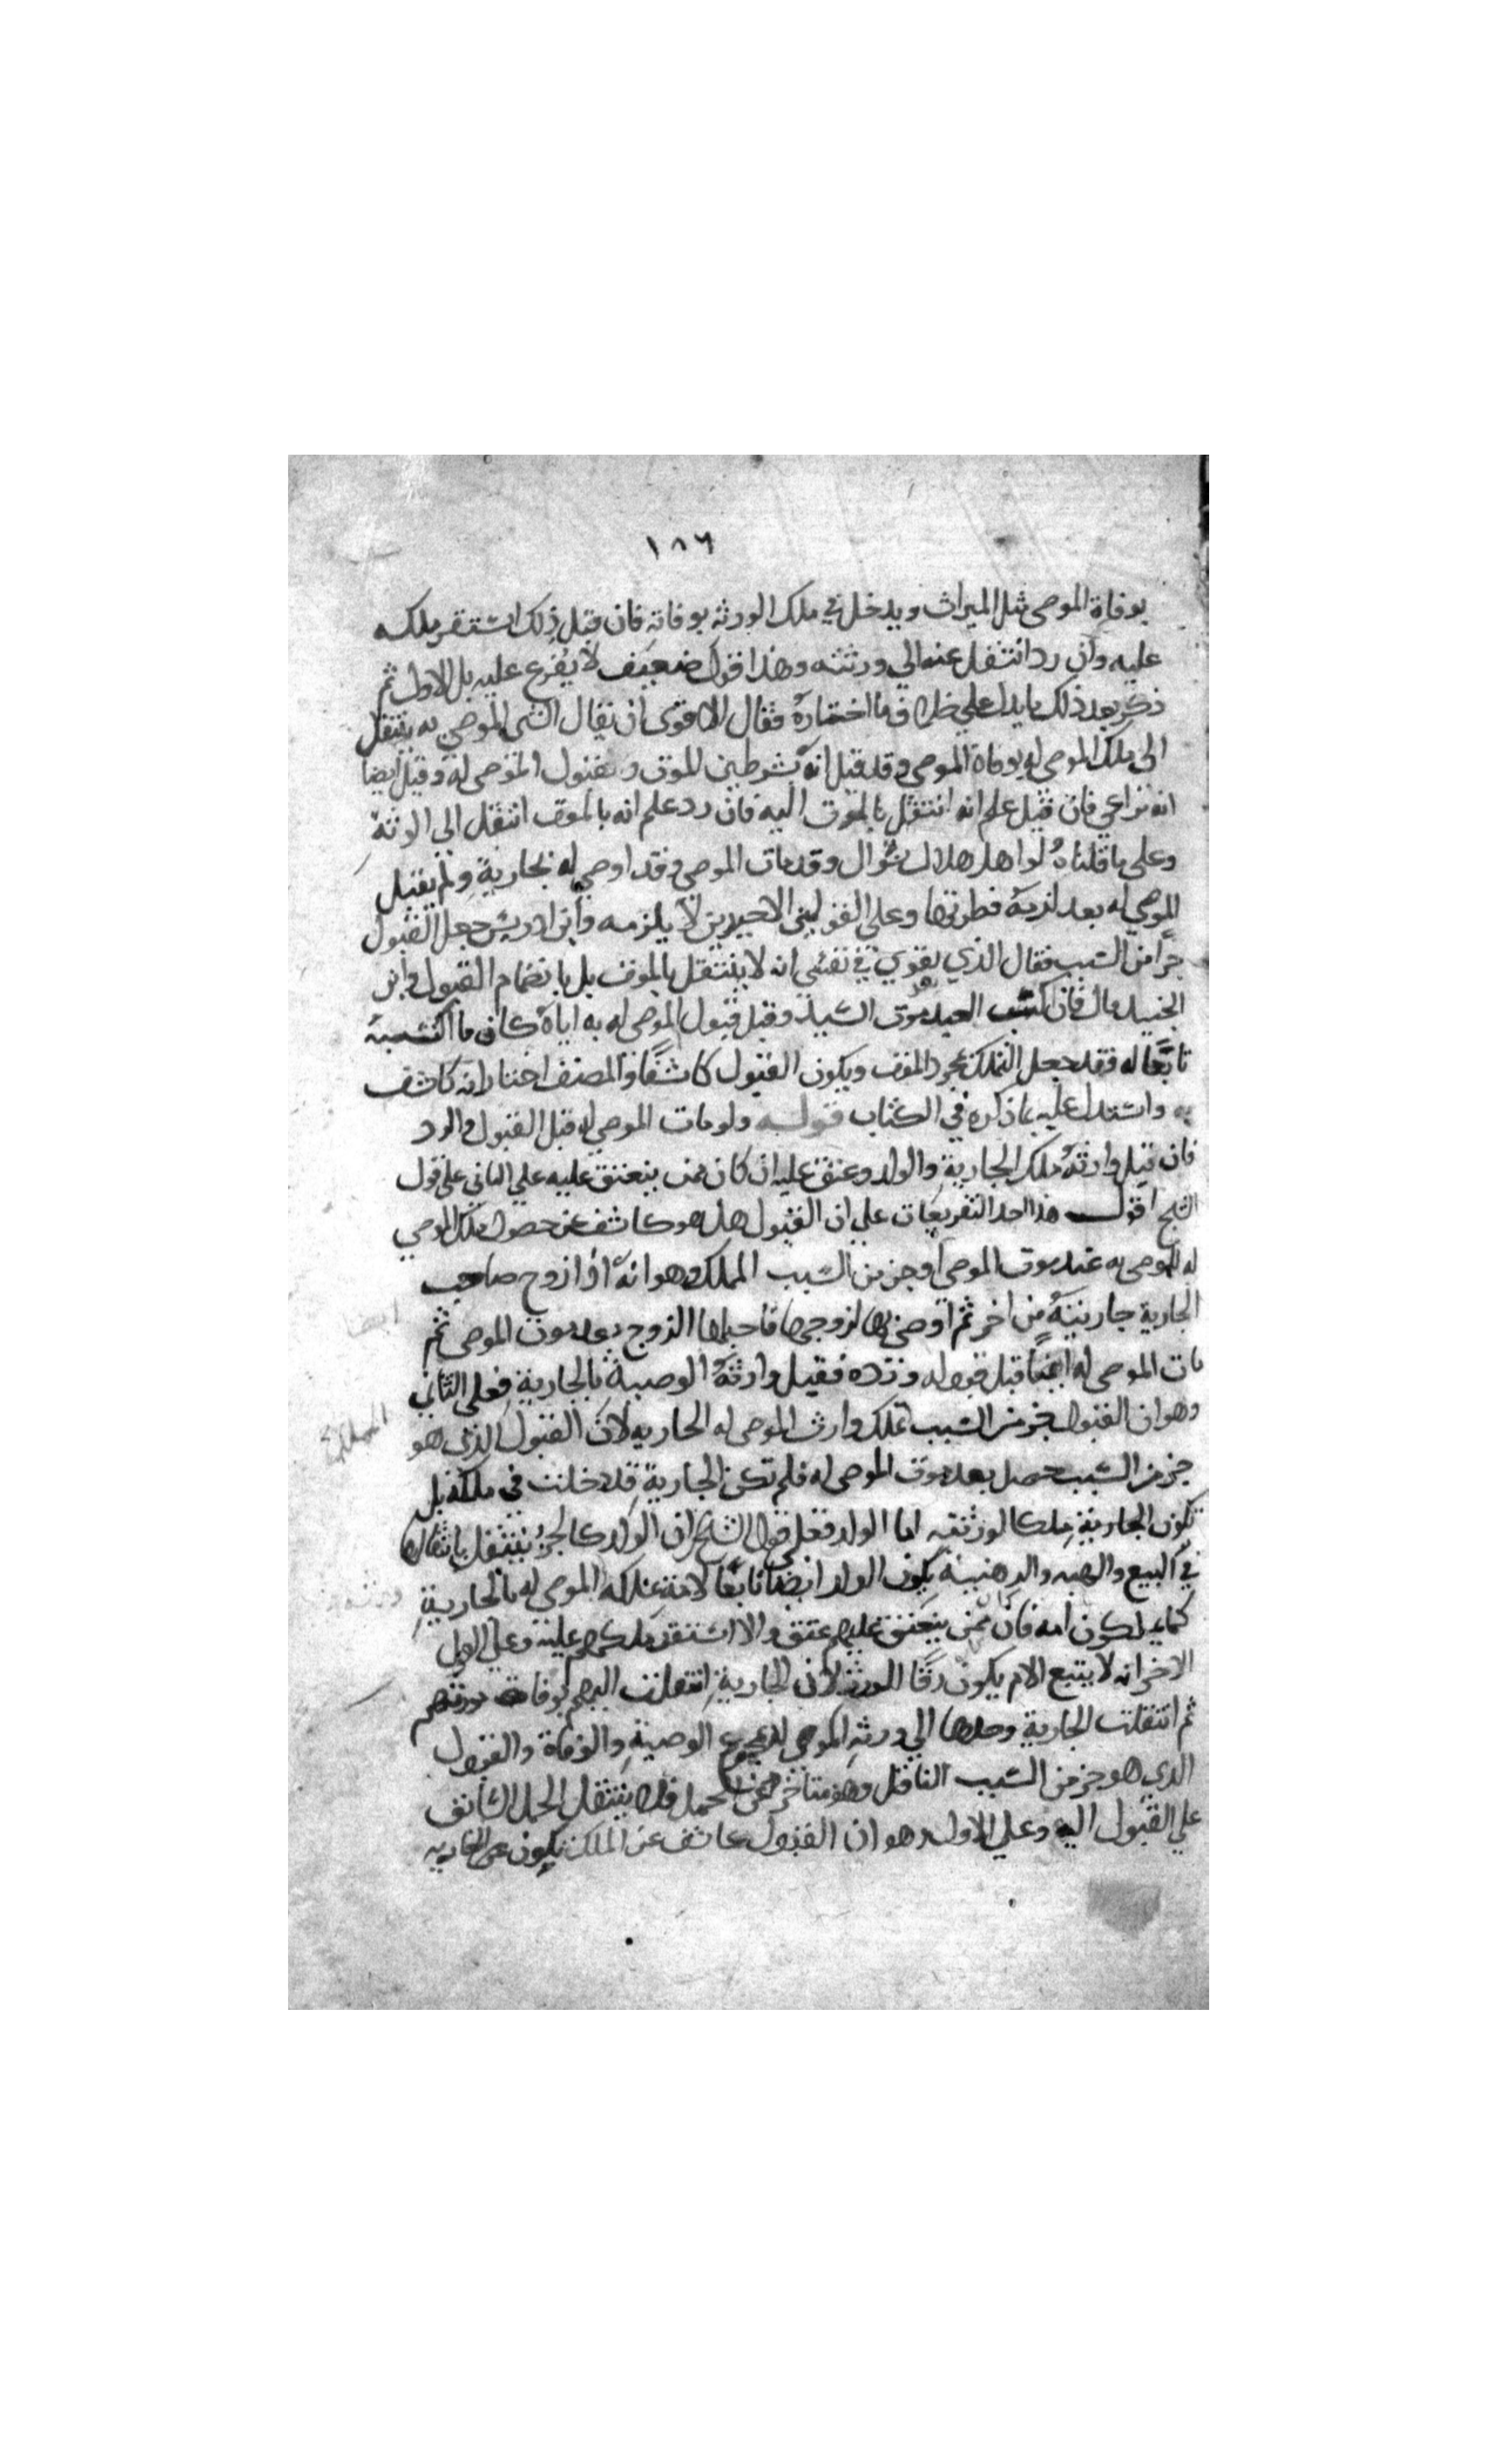 ١٨٦
بوفاة الموصى مثل الميراث ويدخل في ملك الورثه بوفاته فان قبل ذلك استقر ملكه
عليه وان رد انتقل عنه الي ورثته وهذا قول ضعيف لا يفرع عليه بل الاول ثم
ذكر بعد ذلك ما يدل علي خلاف ما اختاره فقال الاقوى ان يقال الشى الموصى به ينتقل
الى ملك الموصى له بوفاة الموصى وقد قيل انه بشرطين بالموت وبقبول الموصى له وقيل ايضا
انه نراعي فان قبل علم انه انتقل بالموت اليه فان رد علم انه بالموت انتقل الى الورثة
وعلى ما قلناه لو اهل هلال شوال وقد مات الموصى وقد اوصى له بجارية ولم يقبل
الموصى له بعد لزمه فطرتها وعلى القولين الاخيرين لا يلزمه وابن ادريس جعل القبول
جزا من السبب فقال الذي يقوى في نفسي انه لا ينتقل بالموت بل بانضمام القبول وابن
الجنيد قال فان اكتسب العبد بعد موت السيد وقبل قبول الموصى له به اياه كان ما اكتسبه
تابعا له فقد جعل التملك بمجرد الموت ويكون القبول كاشفا والمصنف اختار انه كاشف
واستدل عليه بما ذكره في الكتاب قوله ولو مات الموصى له قبل القبول والرد
فان قبل وارثه ملك الجارية والولد وعتق عليه ان كان ممن ينعتق عليه على الثانى على قول
الشيخ اقول هذا احد التفريعات على ان القبول هل هو كاشف عن حصول ملك الموصى
له للموصى به عند موت الموصى او جزء من السبب المملك وهو انه اذا زوج صاحب
الجارية جاريته من اخر ثم اوصى بها لزوجها فاحبلها الزوج بعد موت الموصى ثم
مات الموصى له ايضا قبل قبوله ورده فقبل وارثه الوصية بالجارية فعلى الثاني
وهو ان القبول جزء من السبب تملك وارث الموصى له الجاريه لان القبول الذى هو
جزء من السبب حصل بعد موت الموصى له فلم تكن الجارية قد دخلت في ملكه بل
تكون الجارية ملكا لورثته اما الولد فعلى قول الشيخ ان الولد كالجزء ينتقل بانتقالها
في البيع والهبه والرهنية يكون الولد ايضا تابعا لامه الموصى له بالجارية
امه فان ممن ينعتق عليهم عتق والا استقر ملكهم عليه وعلى القول
الاخر انه لا يتبع الام يكون رقا للورثة لان الجارية انتقلت اليهم بوفاة مورثهم
ثم انتقلت الجارية وحدها الي ورثة الموصى له بمجموع الوصية والوفاة والقبول
الذي هو جزء من السبب الناقل وهو متاخر عن الحمل فلا ينتقل الحمل السابق
على القبول اليه وعلى الاول وهو ان القبول كاشف عن الملك تكون الجاريه